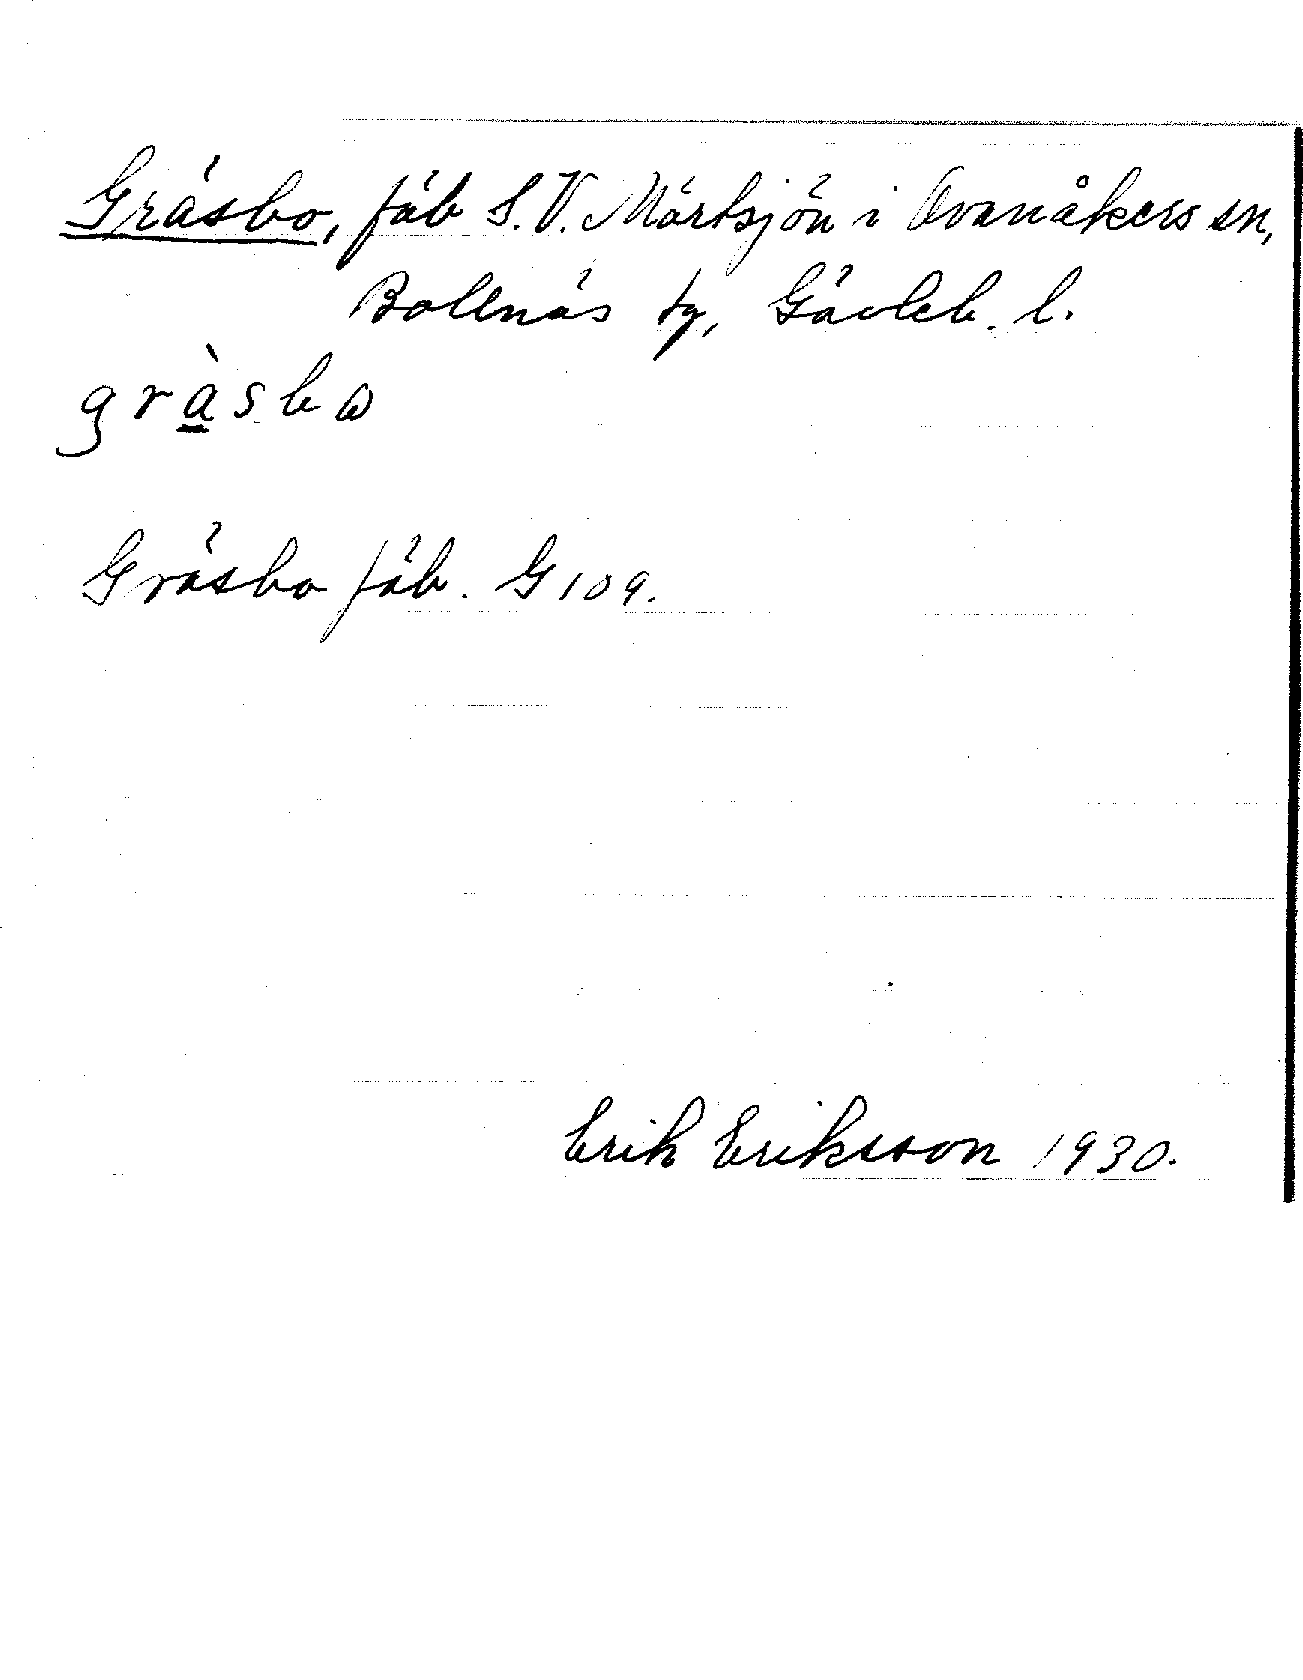 Gräsbo, fäb S.V. Mörtsjön i Ovanåkers sn,
Bollnäs tg, Gävleb. l.
gràsbɷ
Gräsbo fäb. G 109.
Erik Eriksson 1930.